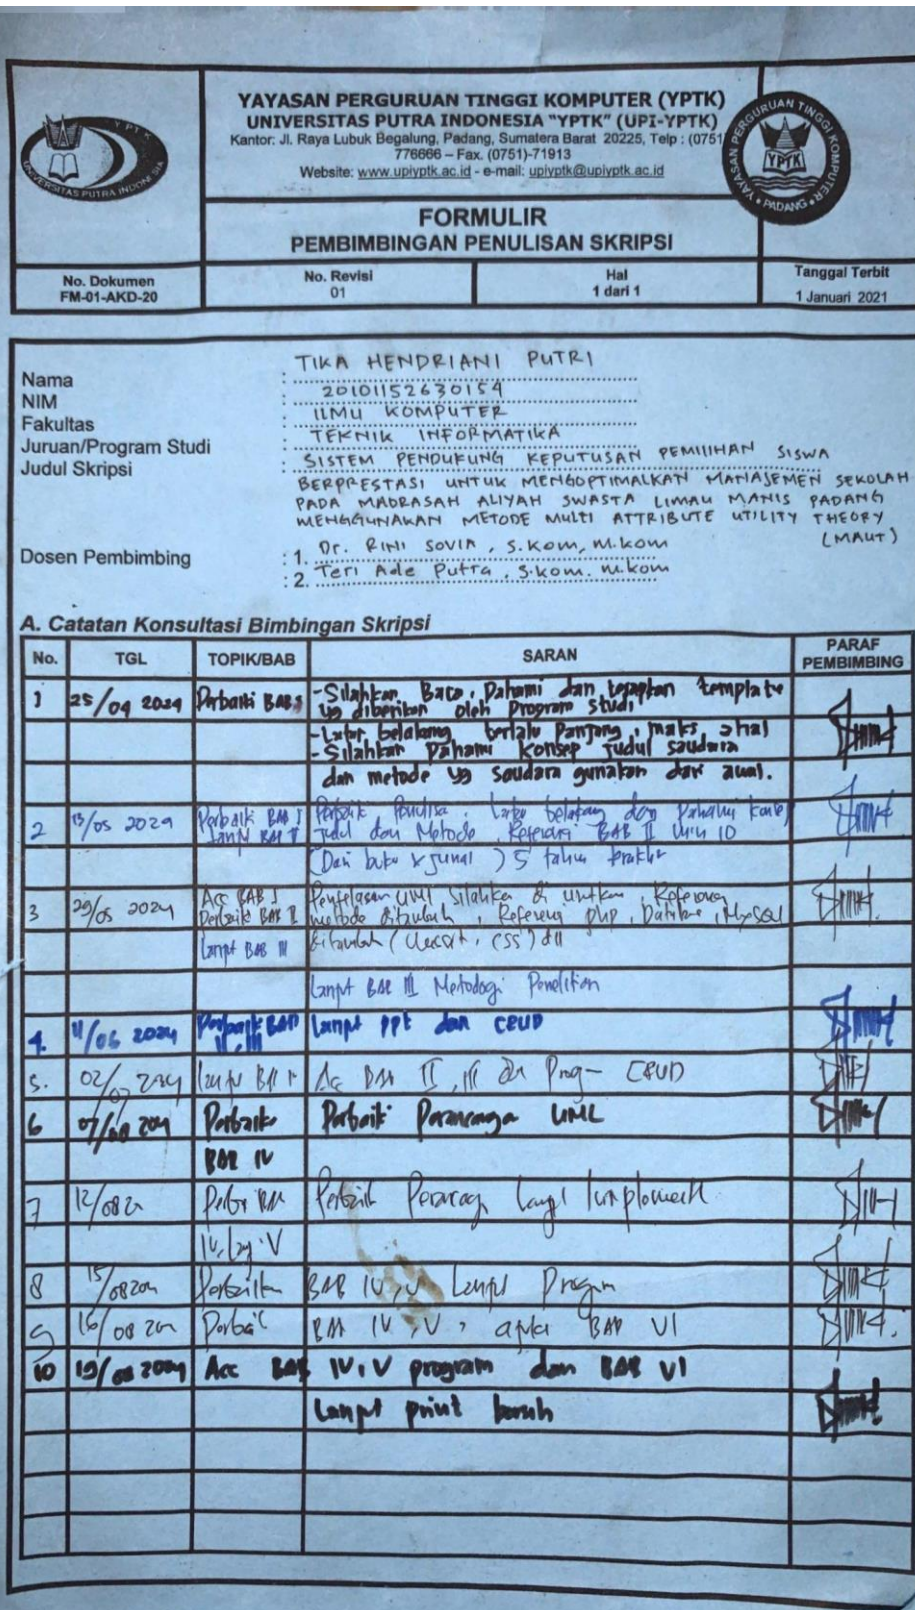 YAYASAN PERGURUAN TINGGI KOMPUTER (YPTK)
UNIVERSITAS PUTRA INDONESIA "YPTK" (UPI-YPTK)
Kantor: Jl. Raya Lubuk Begalung, Padang, Sumatera Barat 20225, Telp : (0751)
776666 – Fax. (0751)-71913
Website: www.upiyptk.ac.id - e-mail: upiyptk@upiyptk.ac.id
YPTK
UNIVERSITAS PUTRA INDONESIA
YAYASAN PERGURUAN TINGGI KOMPUTER
YPTK
PADANG
FORMULIR
PEMBIMBINGAN PENULISAN SKRIPSI
No. Dokumen
FM-01-AKD-20
No. Revisi
01
Hal
1 dari 1
Tanggal Terbit
1 Januari 2021
Nama : TIKA HENDRIANI PUTRI
NIM : 20101152630154
Fakultas : ILMU KOMPUTER
Juruan/Program Studi : TEKNIK INFORMATIKA
Judul Skripsi : SISTEM PENDUKUNG KEPUTUSAN PEMILIHAN SISWA
BERPRESTASI UNTUK MENGOPTIMALKAN MANAJEMEN SEKOLAH
PADA MADRASAH ALIYAH SWASTA LIMAU MANIS PADANG
MENGGUNAKAN METODE MULTI ATTRIBUTE UTILITY THEORY
(MAUT)
Dosen Pembimbing : 1. Dr. RINI SOVIA, S.Kom, M.Kom
: 2. Teri Ade Putra, S.kom. M.kom
A. Catatan Konsultasi Bimbingan Skripsi
No. TGL TOPIK/BAB SARAN PARAF PEMBIMBING
1 25/04 2024 Perbaiki BAB I - Silahkan Baca, Pahami dan terapkan template
yg diberikan oleh Program studi
- Latar belakang terlalu Panjang, maks 2 hal
- Silahkan Pahami Konsep Judul saudara
dan metode yg saudara gunakan dari awal.
2 13/05 2024 Perbaiki BAB I Penulisa, Latar belakang dan Pahami
Lanjut BAB II Judul dan Metode, Referensi BAB II Min 10
(Dari buku & Jurnal) 5 tahun terakhir
3 29/05 2024 Acc BAB I Penjelasan UML Silahkan di urutkan, Referensi
Perbaiki BAB II metode ditambah, Referensi PHP, MySQL
Lanjut BAB III ditambah
Lanjut BAB III Metodogi Penelitian
4. 11/06 2024 Perbaiki BAB II, III Lanjut PPt dan CRUD
5. 02/07 2024 Acc BAB II, III CRUD
6 07/08 2024 Perbaiki Perbaiki Perancangan UML
BAB IV
7 12/08 Perbaiki Lanjut
IV, V
8 15/08 2024 Perbaikan BAB IV, V Lanjut Program
9 16/08 2024 Perbaiki BAB IV, V, BAB VI
10 19/08 2024 Acc BAB IV, V program dan BAB VI
Lanjut print bersih